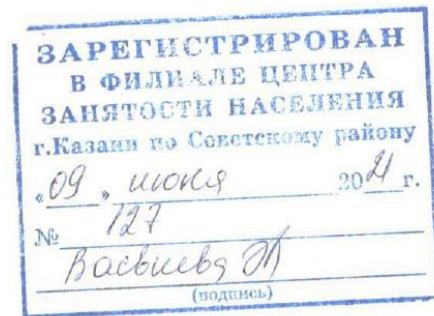 ЗАРЕГИСТРИРОВАН
В ФИЛИАЛЕ ЦЕНТРА
ЗАНЯТОСТИ НАСЕЛЕНИЯ
г.Казани по Советскому району
«09» июня 2021 г.
№ 127
(подпись)